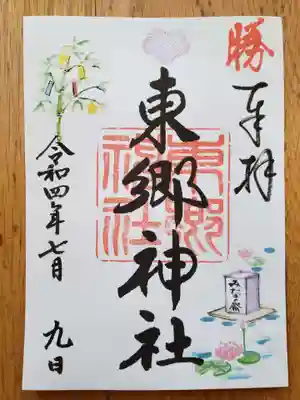 勝
奉拝
東郷神社
東郷神社
みたま祭
令和四年七月 九日